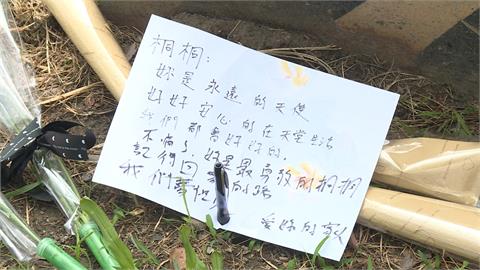 桐桐:
妳是永遠的天使
好好安心的在天堂生活
我們都會好好的
不痛了,妳是最勇敢的桐桐
記得回
我們 的話
愛妳的家人